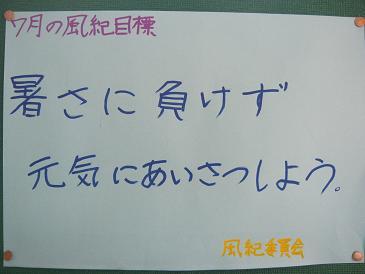 7月の風紀目標
暑さに負けず
元気にあいさつしよう。
風紀委員会